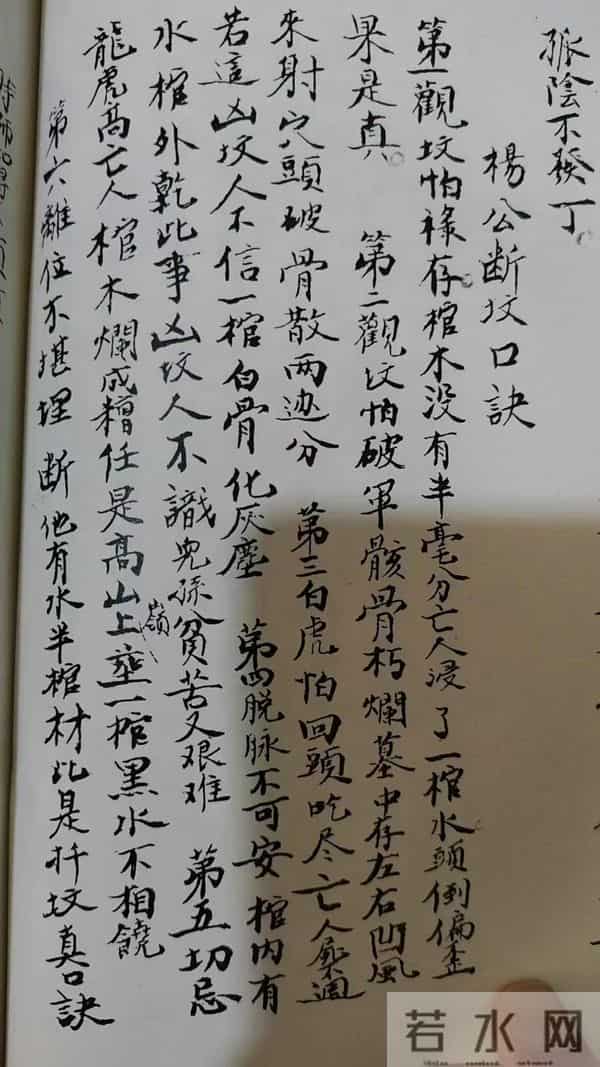 孤陰不發丁。
楊公断坟口訣
第一觀坟怕祿存棺木没有半毫分亡人浸了一棺水頭倒偏歪
果是真。 第二觀坟怕破軍骸骨朽爛墓中存左右凹風
來射穴頭破骨散兩边分 第三白虎怕回頭吃尽亡人
若這凶坟人不信一棺白骨化灰塵 第四脱脉不可安 棺内有
水棺外乾此事凶坟人不識兒孫貧苦又艰难 第五切忌
龍虎高亡人棺木爛成糟任是高山上嶺壟一棺黑水不相饒
第六離位不堪埋 断他有水半棺材此是扦坟真口訣
若水网